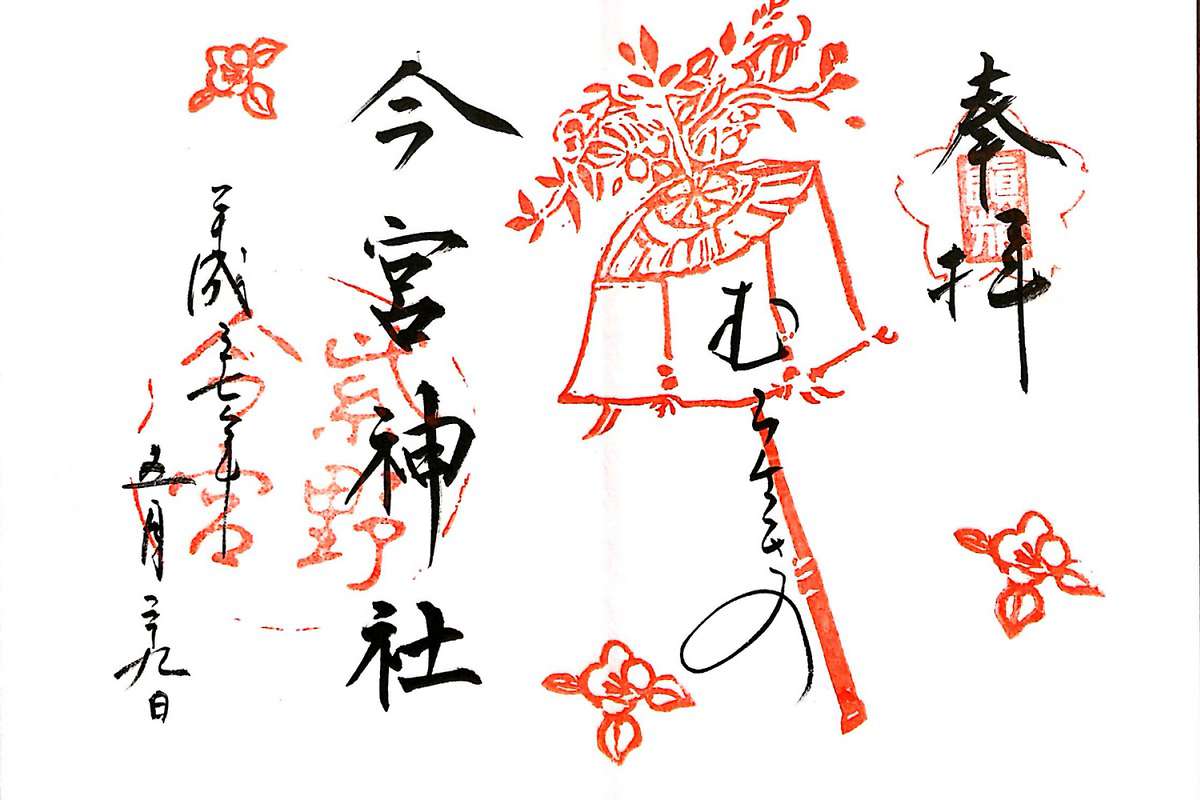 奉拝
むらさきの
今宮神社
平成二十七年
五月二十九日
紫野
今宮